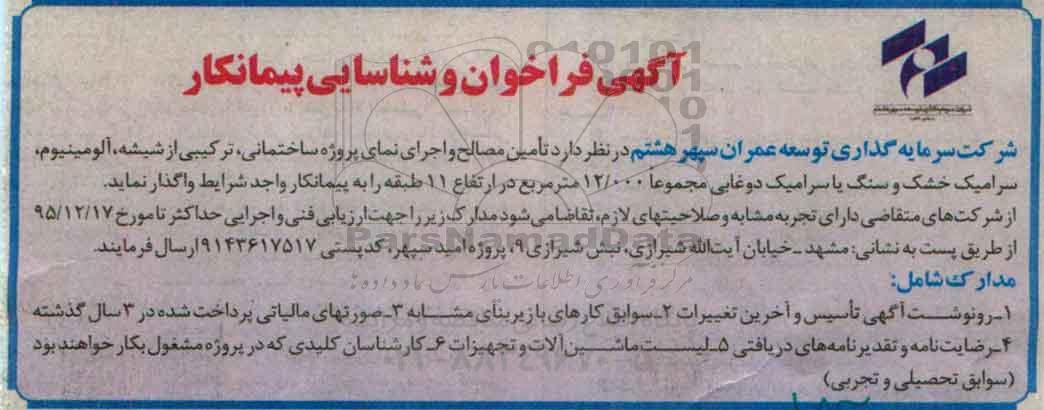 آگهی فراخوان و شناسایی پیمانکار
شرکت سرمایه گذاری توسعه عمران سپهر هشتم در نظر دارد تأمین مصالح و اجرای نمای پروژه ساختمانی، ترکیبی از شیشه، آلومینیوم،
سرامیک خشک و سنگ یا سرامیک دوغابی مجموعاً ۱۲/۰۰۰ مترمربع در ارتفاع ۱۱ طبقه را به پیمانکار واجد شرایط واگذار نماید.
از شرکت‌های متقاضی دارای تجربه مشابه و صلاحیتهای لازم، تقاضا می شود مدارک زیر را جهت ارزیابی فنی و اجرایی حداکثر تا مورخ ۹۵/۱۲/۱۷
از طریق پست به نشانی: مشهد ـ خیابان آیت‌الله شیرازی، نبش شیرازی ۹، پروژه امید سپهر، کدپستی ۹۱۴۳۶۱۷۵۱۷ ارسال فرمایند.
ParsNamadData
مرکز فرآوری اطلاعات پارس نماد داده ها
مدارک شامل:
۱ـ رونوشت آگهی تأسیس و آخرین تغییرات ۲ـ سوابق کارهای با زیربنای مشابه ۳ـ صورتهای مالیاتی پرداخت شده در ۳ سال گذشته
۴ـ رضایت‌نامه و تقدیرنامه‌های دریافتی ۵ـ لیست ماشین‌آلات و تجهیزات ۶ـ کارشناسان کلیدی که در پروژه مشغول بکار خواهند بود
(سوابق تحصیلی و تجربی)